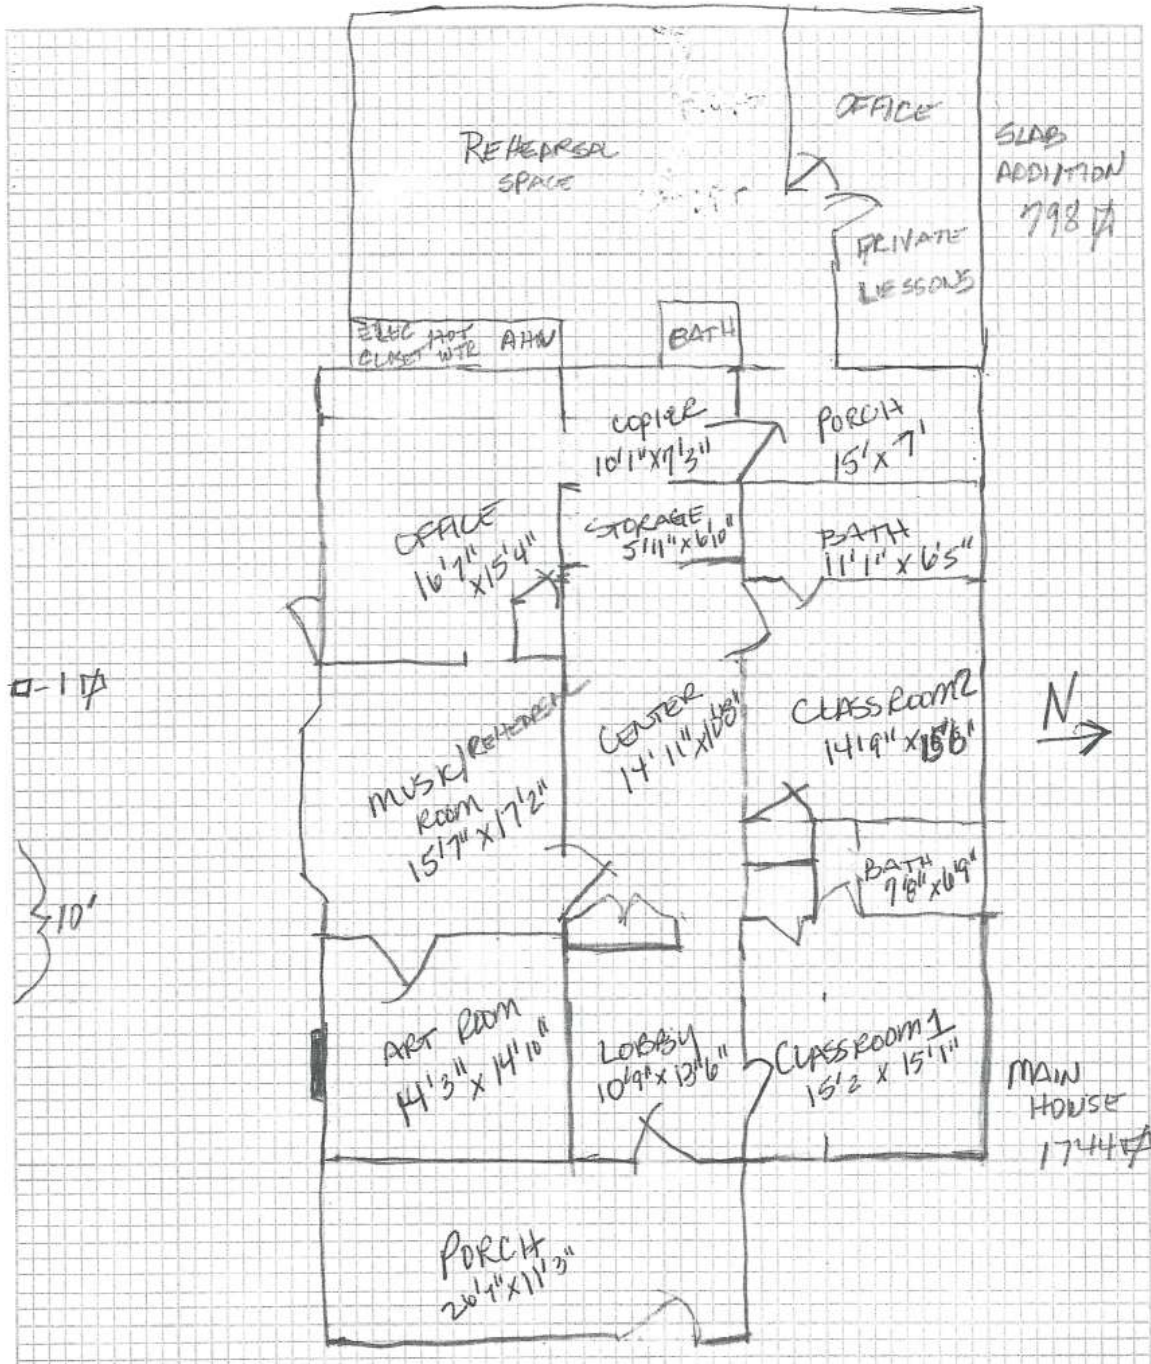 OFFICE
REHEARSAL
SPACE
SLAB
ADDITION
798
PRIVATE
LESSONS
ELEC HOT AHU
CLOSET WTR
BATH
COPIER
10'1" x 7'3"
PORCH
15' x 7'
OFFICE
16'7"
x 15'4"
STORAGE
5'11" x 6'10"
BATH
11'1" x 6'5"
- 1
MUSIC/REHEARSAL
ROOM
15'7" x 17'2"
CENTER
14'11" x
CLASSROOM 2
14'9" x
N
10'
BATH
7'8" x 6'9"
ART ROOM
14'3" x 14'10"
LOBBY
10'9" x 13'6"
CLASSROOM 1
15'2 x 15'1"
MAIN
HOUSE
1744
PORCH
x 11'3"